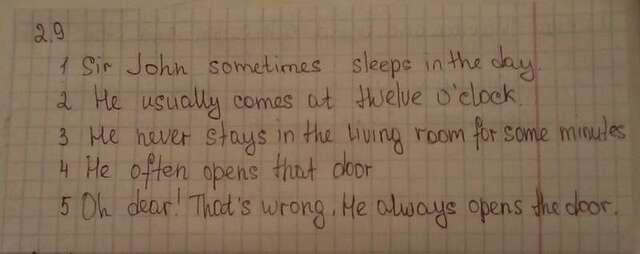 2.9
1 Sir John sometimes sleeps in the day.
2 He usually comes at twelve o'clock.
3 He never stays in the living room for some minutes
4 He often opens that door
5 Oh dear! That's wrong. He always opens the door.